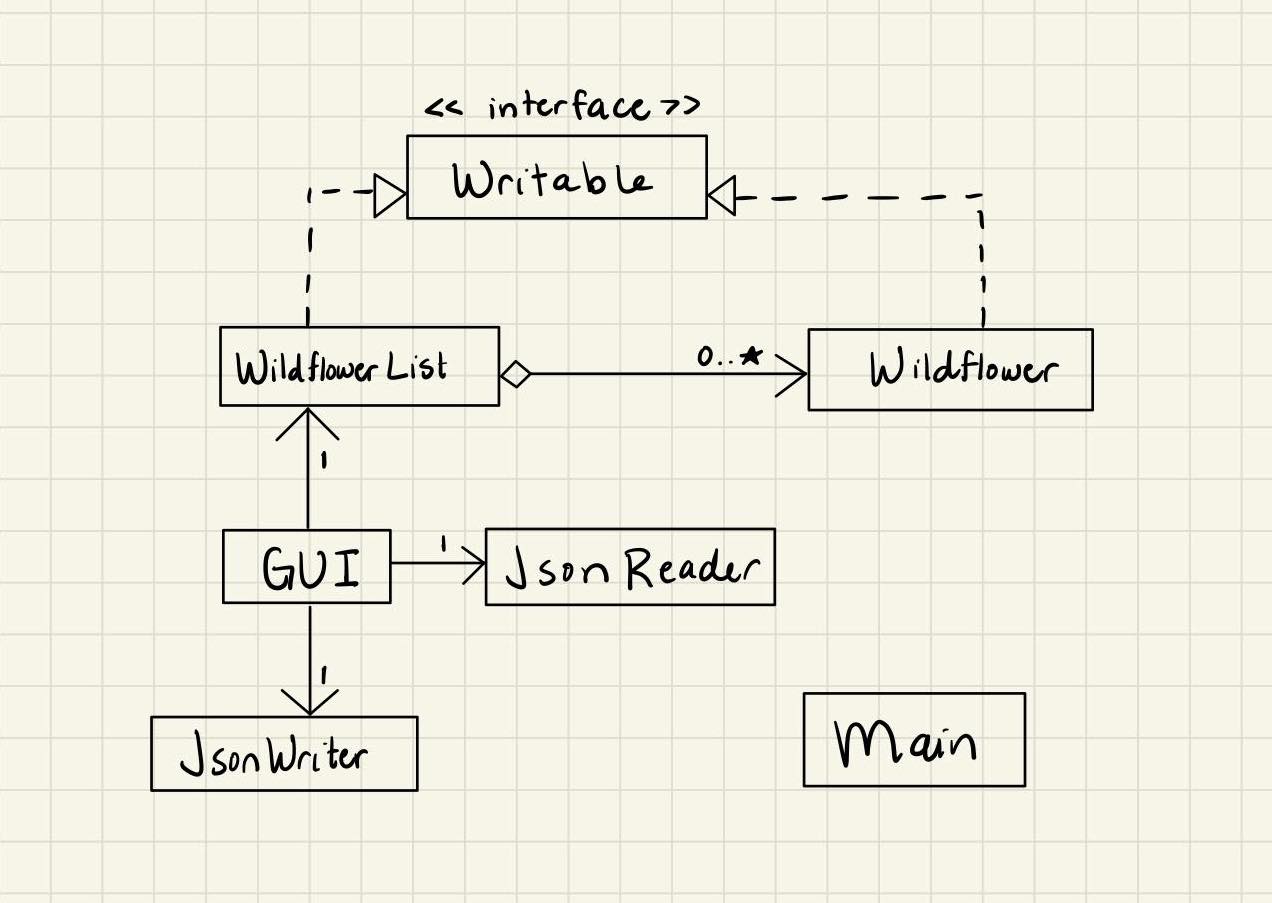 << interface >>
Writable
WildflowerList
0..*
Wildflower
1
GUI
1
JsonReader
1
JsonWriter
Main